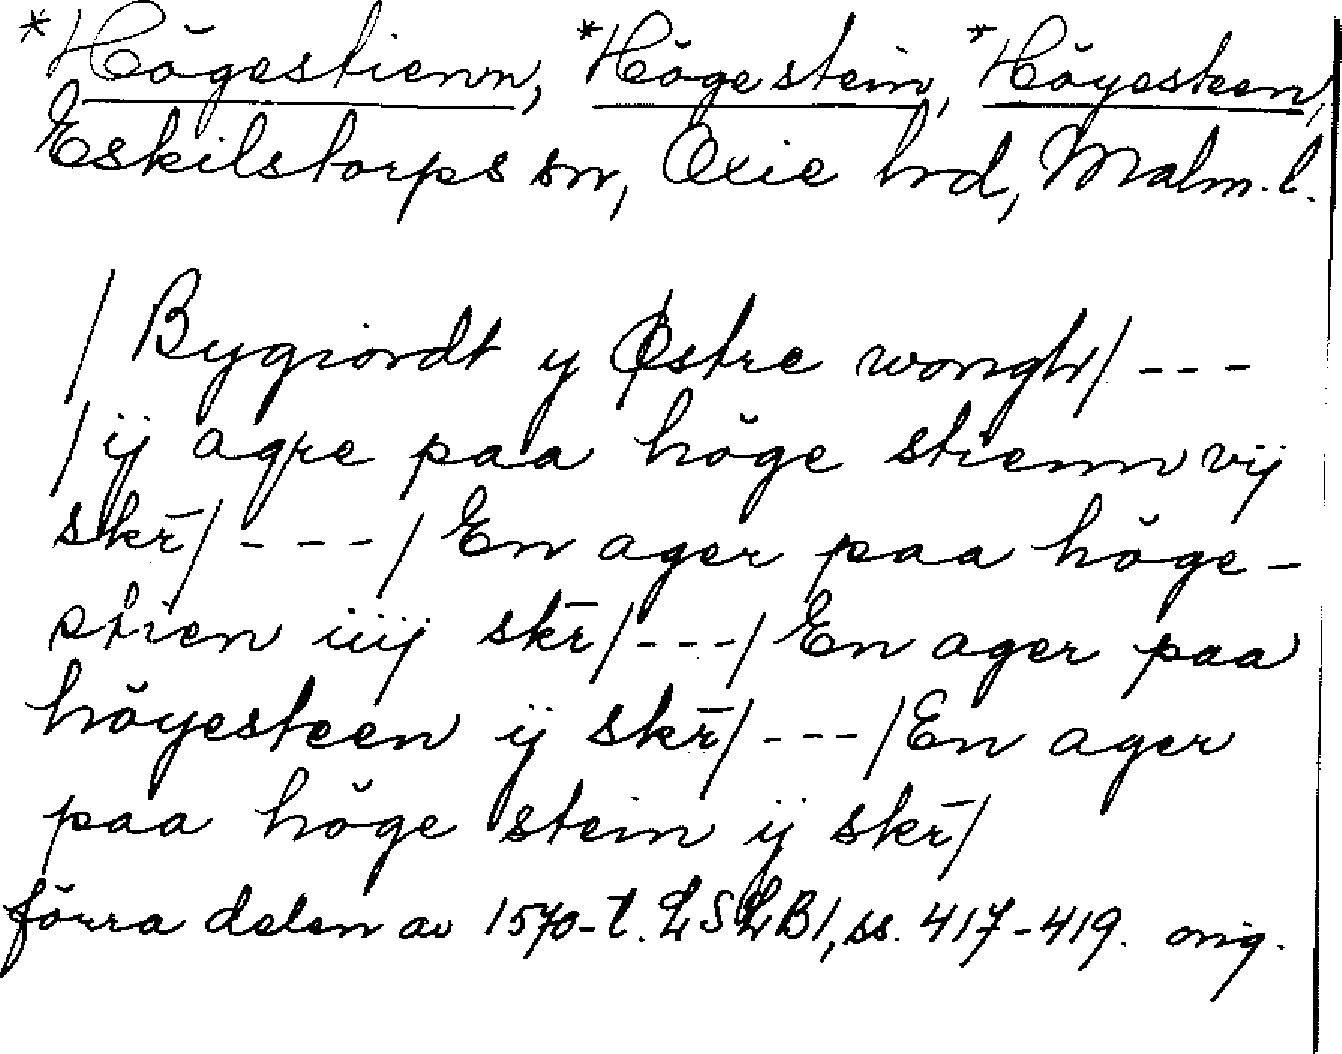 *Högestienn, *Högestein, *Höyesteen,
Eskilstorps sn, Oxie hd, Malm. l.
/ Bygiordt y Østre wongh/ ---
/ ij agre paa höge stienn vij
skr̄/ --- / En ager paa höge-
stien iiij skr̄/ --- / En ager paa
höyesteen ij skr̄/ --- / En ager
paa höge stein ij skr̄/
förra delen av 1570-t. LSLB1, ss. 417-419. orig.